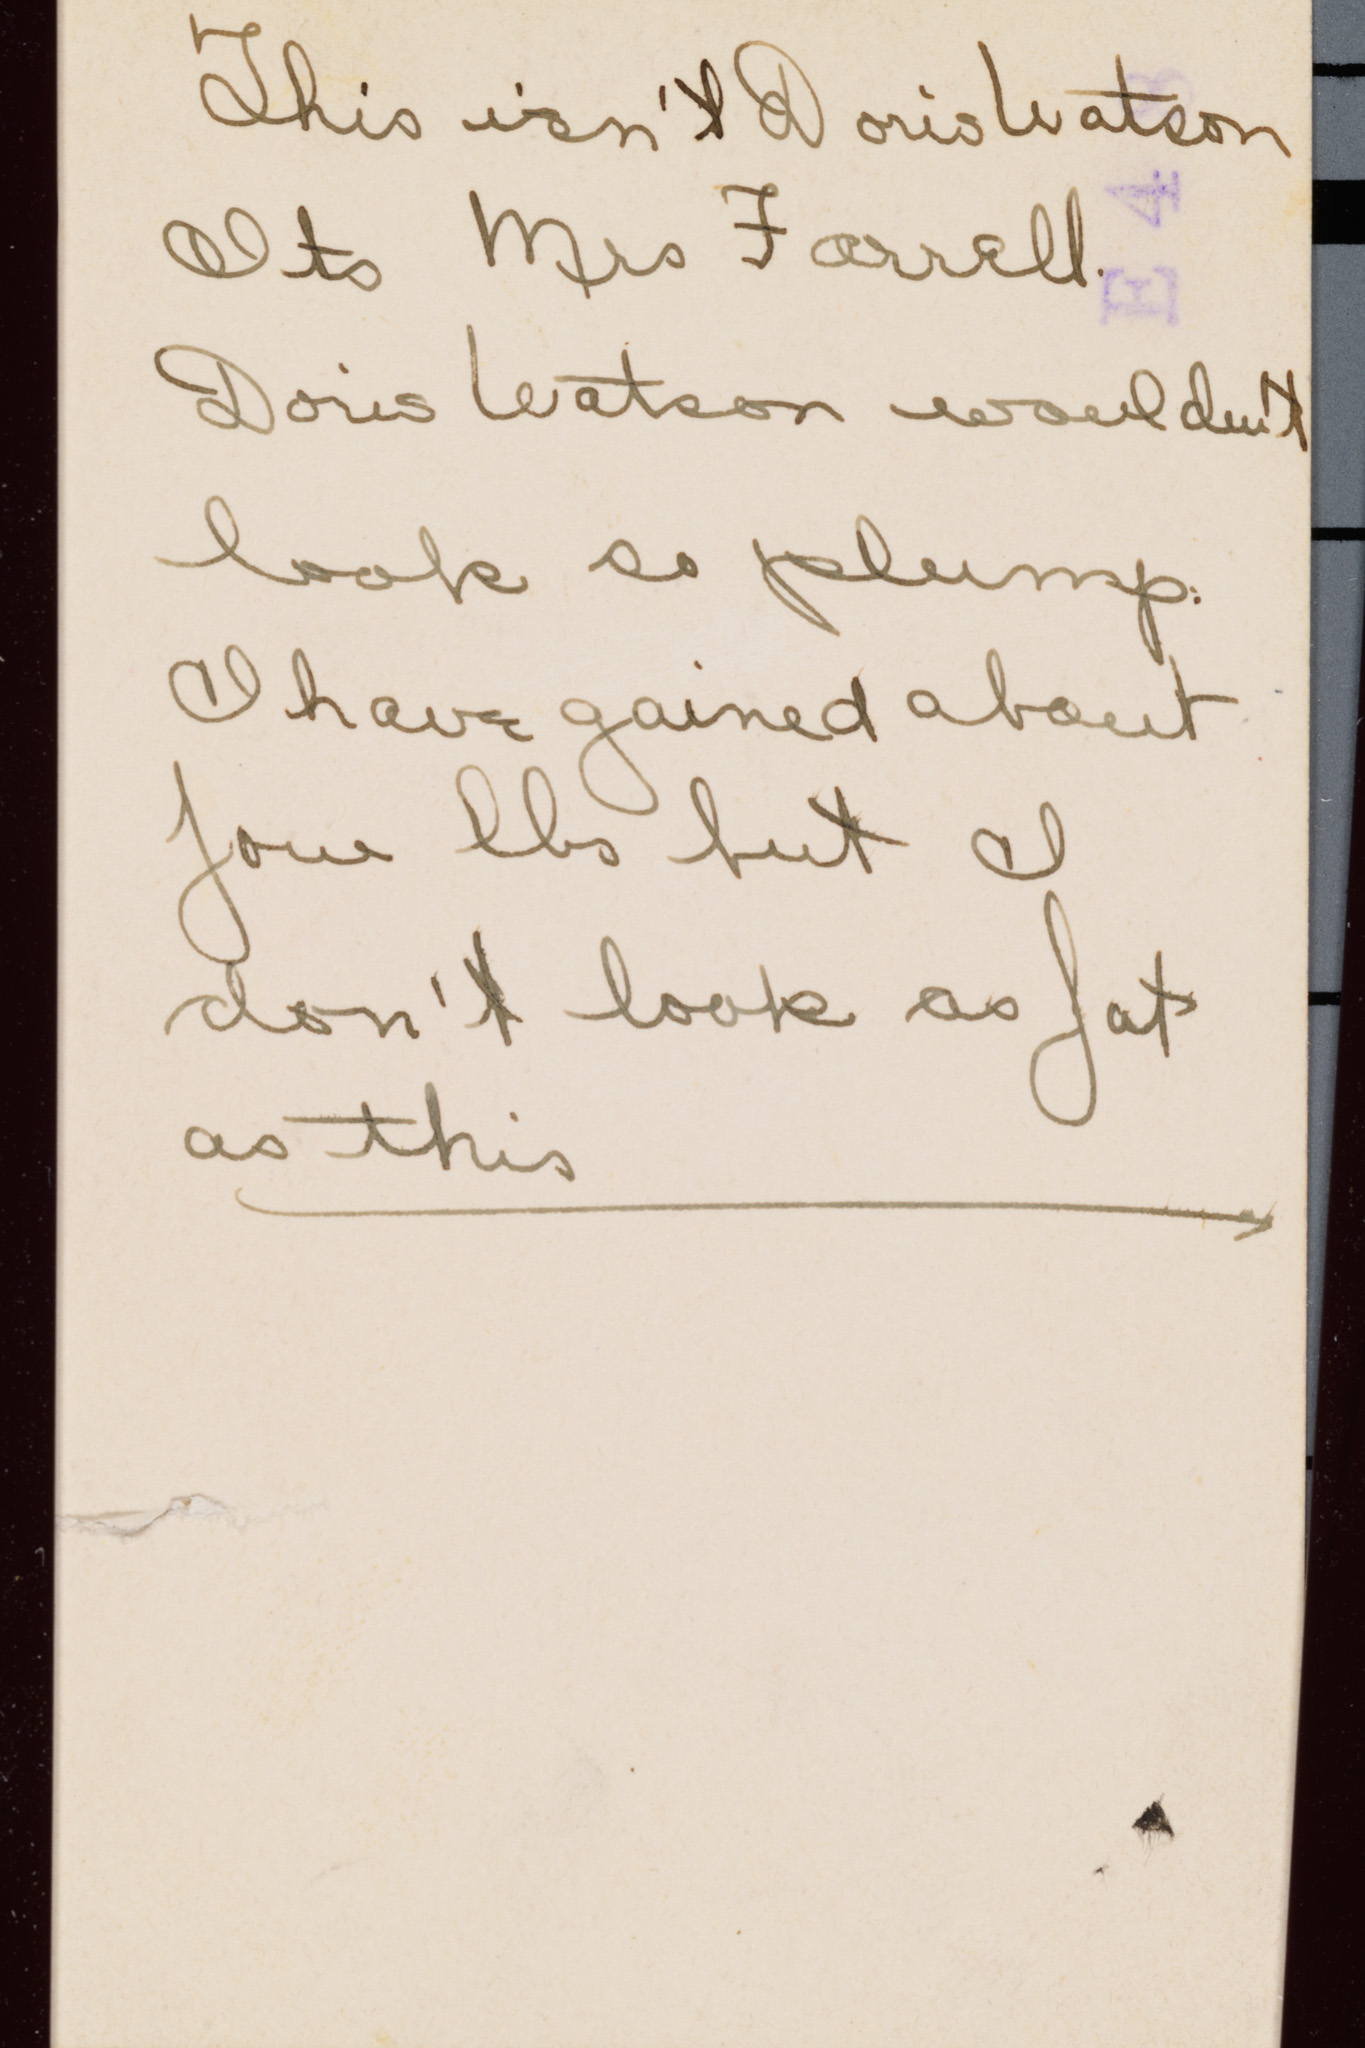 This isn't Doris Watson
Its Mrs Farrell.
Doris Watson wouldn't
look so plump.
I have gained about
four lbs but I
don't look as fat
as this
E 4 8